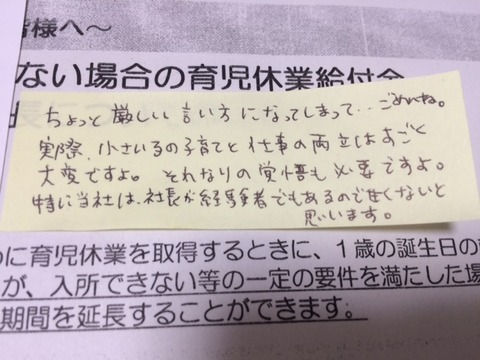 皆様へ～
ない場合の育児休業給付金
ちょっと厳しい言い方になってしまって‥ごめんね。
実際、小さい子の子育てと仕事の両立はすごく
大変ですよ。それなりの覚悟も必要ですよ。
特に当社は、社長が経験者でもあるので甘くないと
思います。
に育児休業を取得するときに、1歳の誕生日の
が、入所できない等の一定の要件を満たした場
期間を延長することができます。